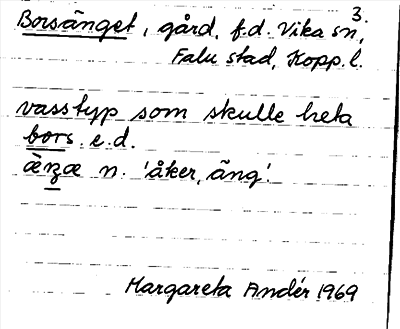 3.
Borsänget, gård, f.d. Vika sn,
Falu stad, Kopp. l.
vasstyp som skulle heta
bors e.d.
æ̀ʒæ n. 'åker, äng'.
Margareta Andér 1969